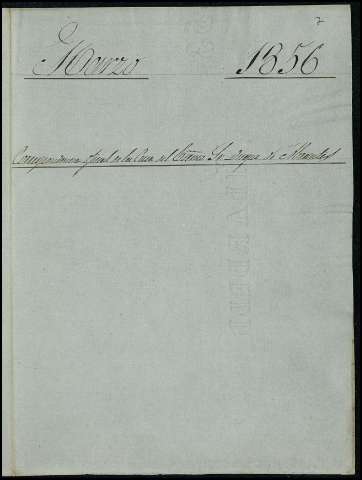 7
Marzo 1856
Correspondencia oficial de la Casa del Excmo Sr Duque de Abrantes